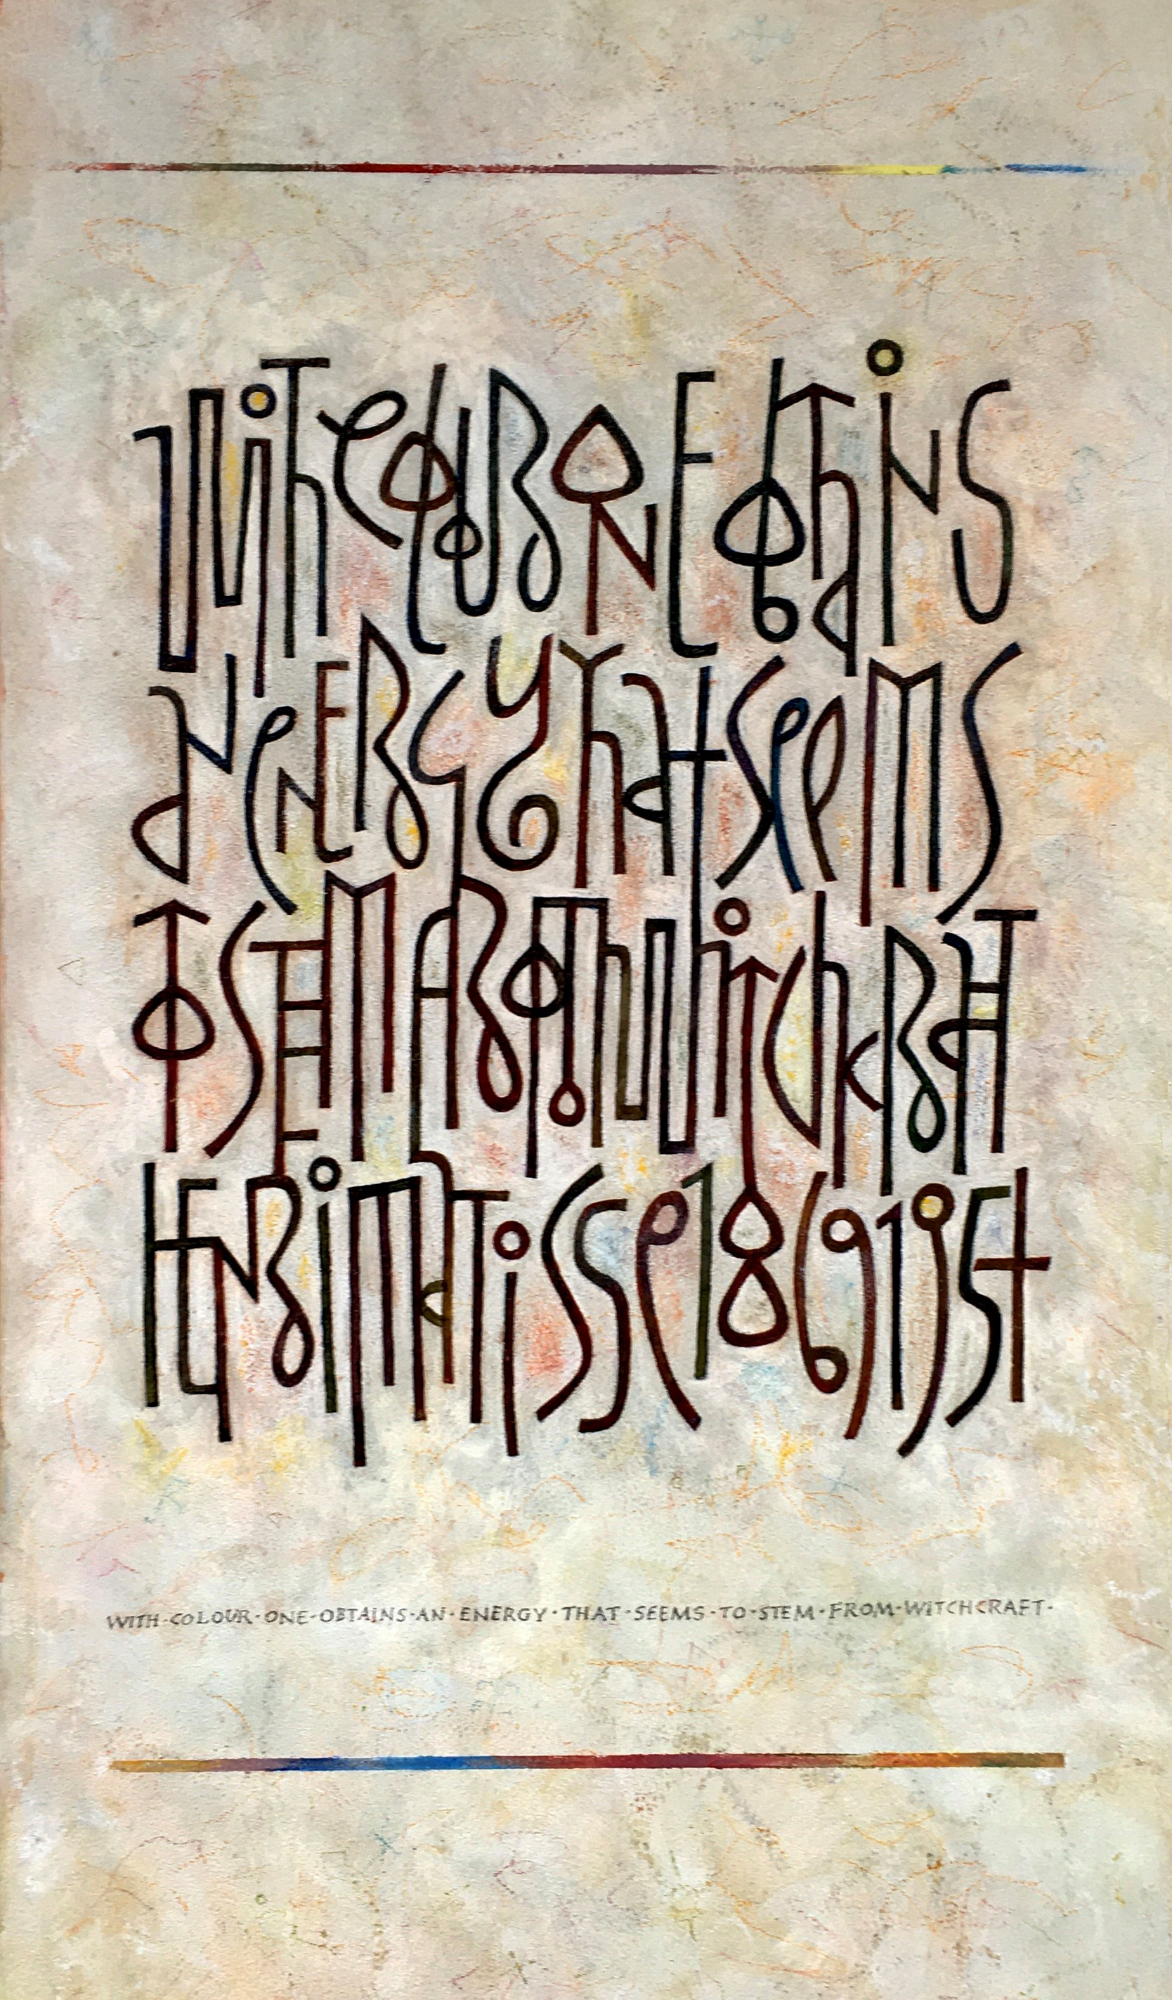 With colour one obtains
an energy that seems
to stem from witchcraft
Henri Matisse 1869 1954
WITH·COLOUR·ONE·OBTAINS·AN·ENERGY·THAT·SEEMS·TO·STEM·FROM·WITCHCRAFT·